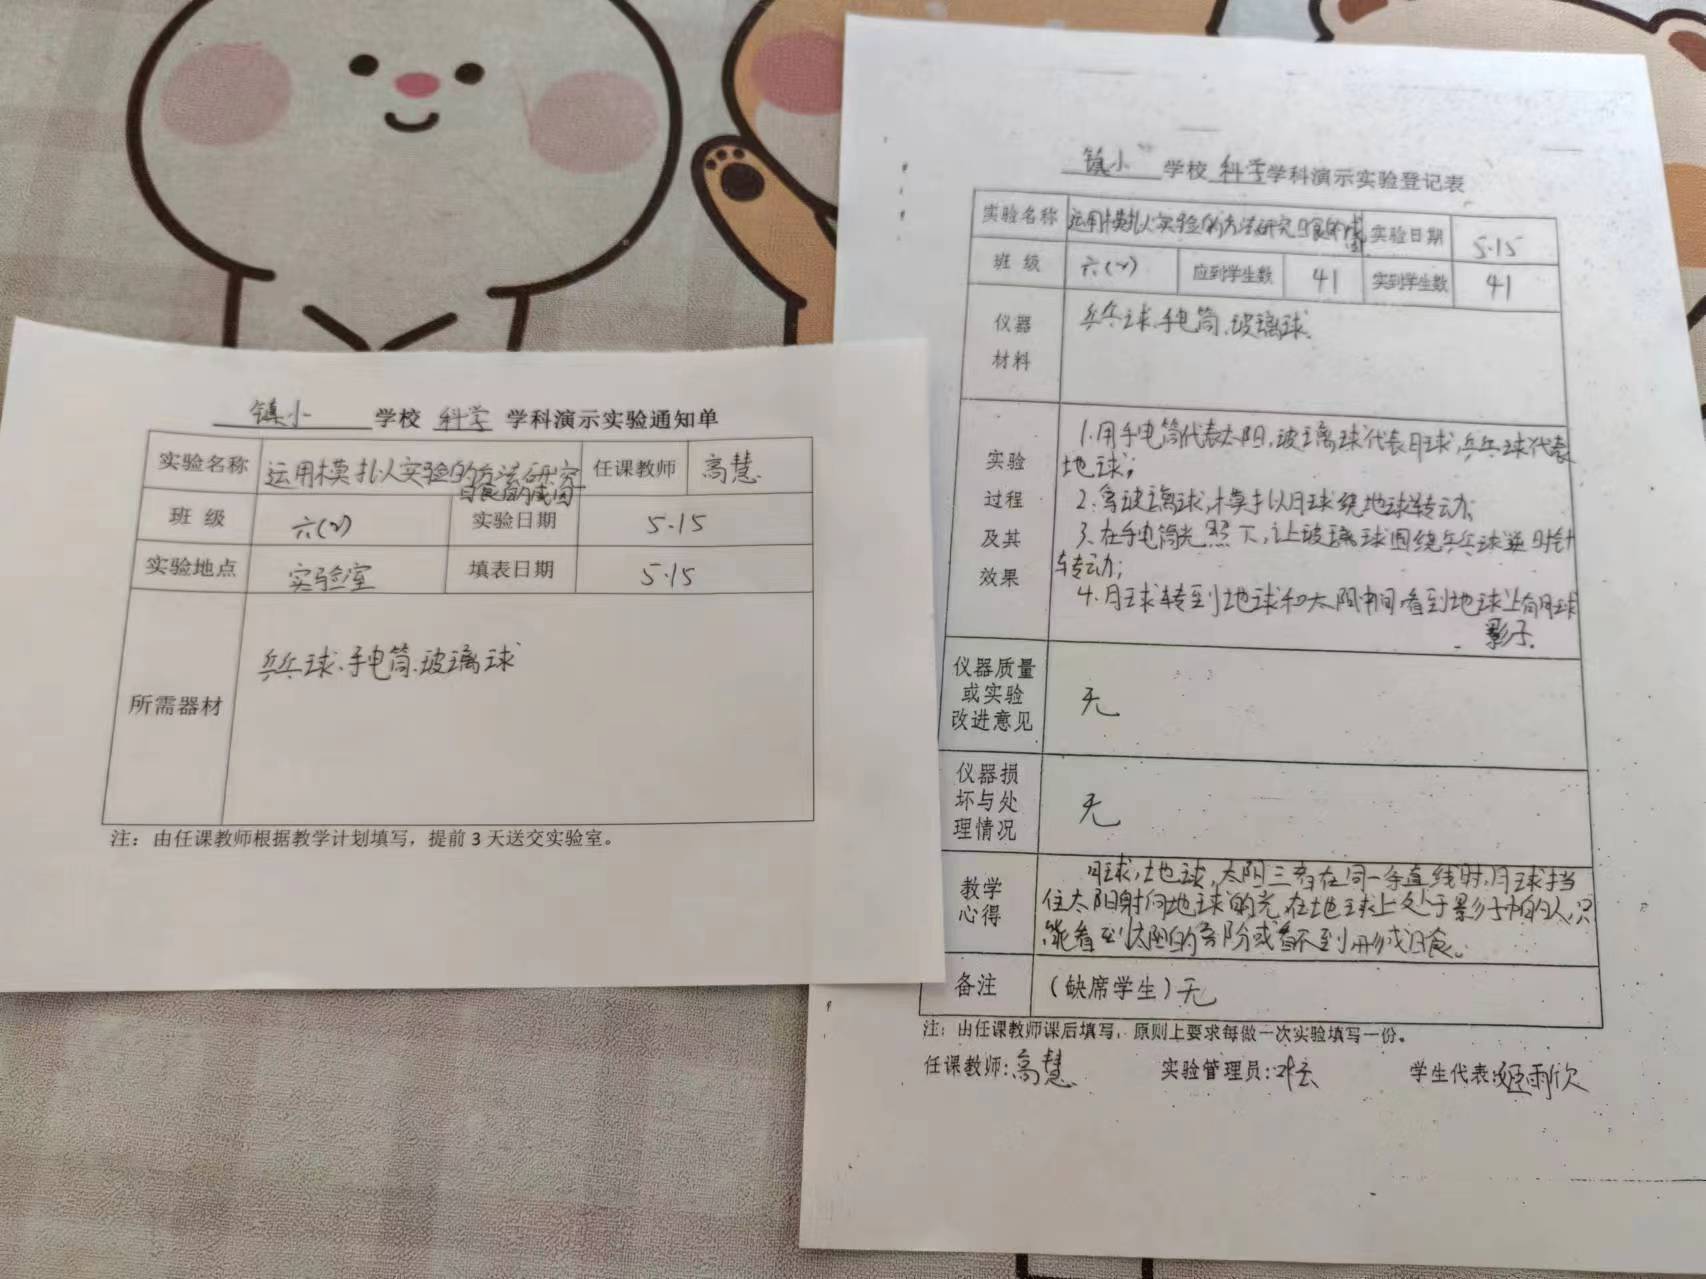 镇小 学校 科学 学科演示实验通知单
实验名称 运用模拟实验的方法研究日食的成因 任课教师 高慧
班 级 六(2) 实验日期 5.15
实验地点 实验室 填表日期 5.15
所需器材 乒乓球、手电筒、玻璃球
注：由任课教师根据教学计划填写，提前3天送交实验室。
镇小 学校 科学学科演示实验登记表
实验名称 运用模拟实验的方法研究日食的成因 实验日期 5.15
班 级 六(2) 应到学生数 41 实到学生数 41
仪器材料 乒乓球、手电筒、玻璃球
实验过程及其效果
1.用手电筒代表太阳,玻璃球代表月球,乒乓球代表
地球;
2.拿玻璃球,模拟月球绕地球转动;
3.在手电筒光照下,让玻璃球围绕乒乓球逆时针
转动;
4.月球转到地球和太阳中间看到地球上有月球
影子.
仪器质量或实验改进意见 无
仪器损坏与处理情况 无
教学心得
月球,地球,太阳三者在同一条直线时,月球挡
住太阳射向地球的光,在地球上处于影子中的人,只
能看到太阳的部分或看不到形成日食。
备注 (缺席学生)无
注：由任课教师课后填写，原则上要求每做一次实验填写一份。
任课教师:高慧 实验管理员: 学生代表:姬雨欣